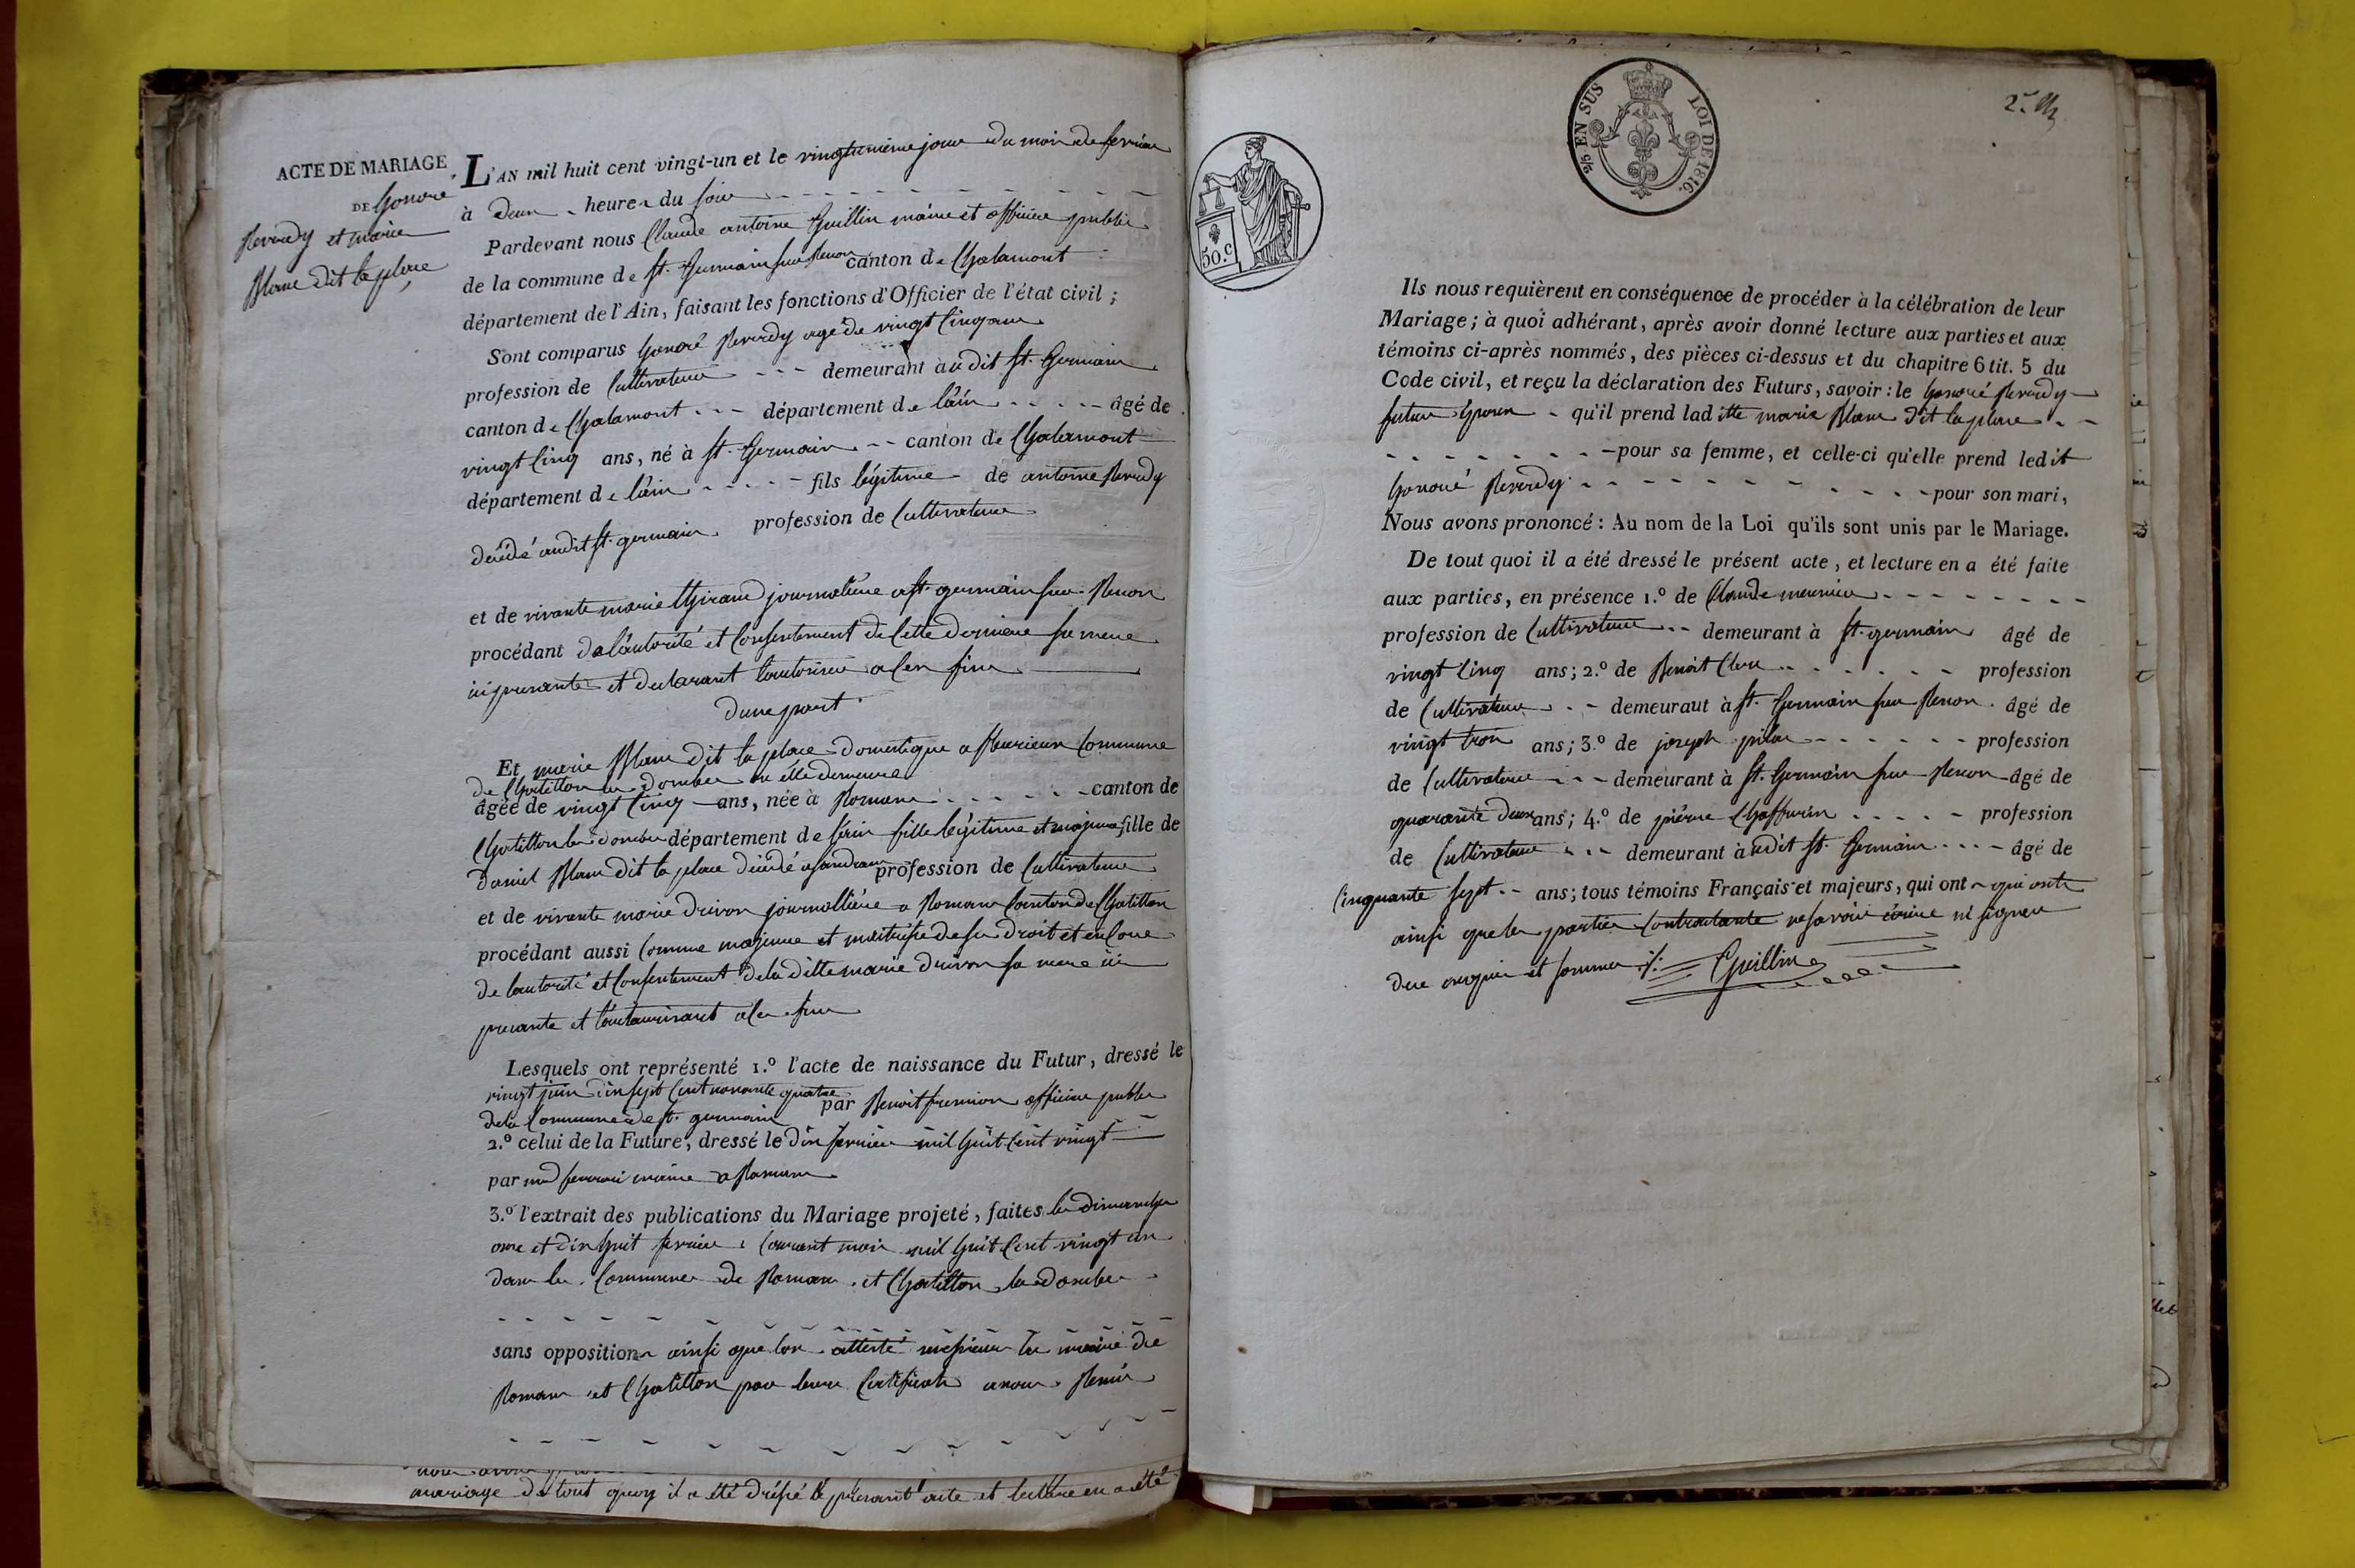 ACTE DE MARIAGE
DE honoré
Reverdy et marie
Blanc dit la place
L'AN mil huit cent vingt-un et le vingtunième jour du mois de fevrier
à deux heures du soir
Pardevant nous Claude antoine Guillin maire et officier public
de la commune de St. Germain sur Renon canton de Chalamont
département de l'Ain, faisant les fonctions d'Officier de l'état civil ;
Sont comparus honoré Reverdy agé de vingt cinq ans
profession de cultivateur demeurant audit St. Germain
canton de Chalamont département de l'ain âgé de
vingt cinq ans, né à St. Germain canton de Chalamont
département de l'ain fils légitime de antoine Reverdy
décédé audit St. germain profession de cultivateur
et de vivante marie Giraud journalière a St. germain sur Renon
procédant de l'autorité et consentement de cette derniere sa mere
ici presante et declarant l'autoriser a ces fins
dune part
Et marie Blanc dit la place domestique a fleurieux commune
de Chatillon les dombes ou elle demeure
âgée de vingt cinq ans, née à Romans canton de
Chatillon les dombes département de l'ain fille légitime et majeure fille de
daniel Blanc dit la place décédé a sandrans profession de cultivateur
et de vivante marie drivon journallière a Romans canton de Chatillon
procédant aussi comme majeure et maitrise de ses droits et encore
de lautorité et consentement de la ditte marie drivon sa mere ici
presante et l'autaurisant a ces fins
Lesquels ont représenté 1.º l'acte de naissance du Futur, dressé le
vingt juin dix sept cent nonante quatre
de la commune de St. germain par Benoit officier public
2.º celui de la Future, dressé le dix fevrier mil huit cent vingt
par maire a Romans
3.º l'extrait des publications du Mariage projeté, faites les dimanches
onze et dix huit fevrier courant mois mil huit cent vingt un
dans les communes de Romans et Chatillon les dombes
sans opposition ainsi que lon attesté messieurs les maires de
Romans et Chatillon par leurs certificats a nous Remis
mariage de tout quoy il a été dréssé le présant acte et lecture en a été
2/10 EN SUS LOI DE 1816.
50.C
Ils nous requièrent en conséquence de procéder à la célébration de leur
Mariage ; à quoi adhérant, après avoir donné lecture aux parties et aux
témoins ci-après nommés, des pièces ci-dessus et du chapitre 6 tit. 5 du
Code civil, et reçu la déclaration des Futurs, savoir : le honoré Reverdy
futur Epoux qu'il prend laditte marie Blanc dit la place
pour sa femme, et celle-ci qu'elle prend ledit
honoré Reverdy pour son mari,
Nous avons prononcé : Au nom de la Loi qu'ils sont unis par le Mariage.
De tout quoi il a été dressé le présent acte, et lecture en a été faite
aux parties, en présence 1.º de Claude meunier
profession de cultivateur demeurant à St. germain âgé de
vingt cinq ans ; 2.º de Benoit profession
de cultivateur demeurant à St. Germain sur Renon âgé de
vingt trois ans ; 3.º de joseph profession
de cultivateur demeurant à St. Germain sur Renon âgé de
quarante deux ans ; 4.º de pierre Chaffurin profession
de cultivateur demeurant à audit St. Germain âgé de
cinquante sept ans ; tous témoins Français et majeurs, qui ont qui onts
ainsi que les parties contractante ne savoir écrire ni signer
de ce enquis et sommes Guillin